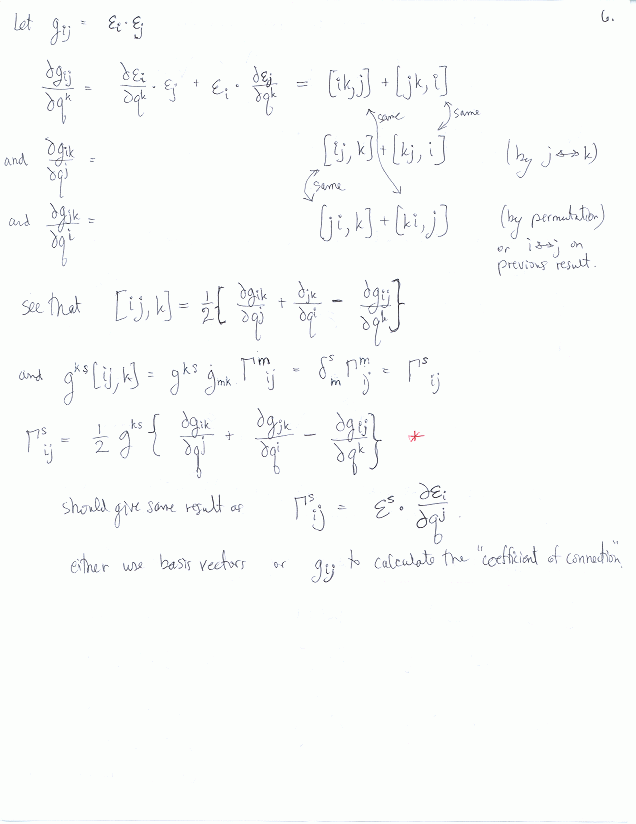 6.
Let g_ij = ε_i · ε_j
∂g_ij/∂q^k = ∂ε_i/∂q^k · ε_j + ε_i · ∂ε_j/∂q^k = [ik,j] + [jk,i]
same same
and ∂g_ik/∂q^j = [ij,k] + [kj,i] (by j↔k)
same
and ∂g_jk/∂q^i = [ji,k] + [ki,j] (by permutation)
or i↔j on
previous result.
see that [ij,k] = 1/2 { ∂g_ik/∂q^j + ∂_jk/∂q^i − ∂g_ij/∂q^k }
and g^ks [ij,k] = g^ks g_mk Γ^m_ij = δ^s_m Γ^m_ij = Γ^s_ij
Γ^s_ij = 1/2 g^ks { ∂g_ik/∂q^j + ∂g_jk/∂q^i − ∂g_ij/∂q^k } *
should give same result as Γ^s_ij = ε^s · ∂ε_i/∂q^j .
either use basis vectors or g_ij to calculate the "coefficient of connection".